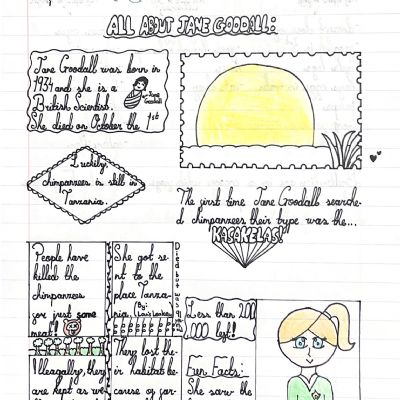 ALL ABOUT JANE GOODALL:
Jane Goodall was born in
1934 and she is a
British Scientist.
She died on October the 1st
Jane
Goodall
Luckily,
chimpanzees is still in
Tanzania.
The first time Jane Goodall searche-
d chimpanzees their type was the...
KASAKELAS!
People have
killed the
chimpanzees
you just some
meat!
She got se-
nt to the
place Tanza-
nia.
By:
Louis Leakey
Died but was 91
Less than 200
,000 left!
Illeagally, they
are kept as we-
They lost the-
ir habitat be-
cause of
Fun Facts:
She saw the